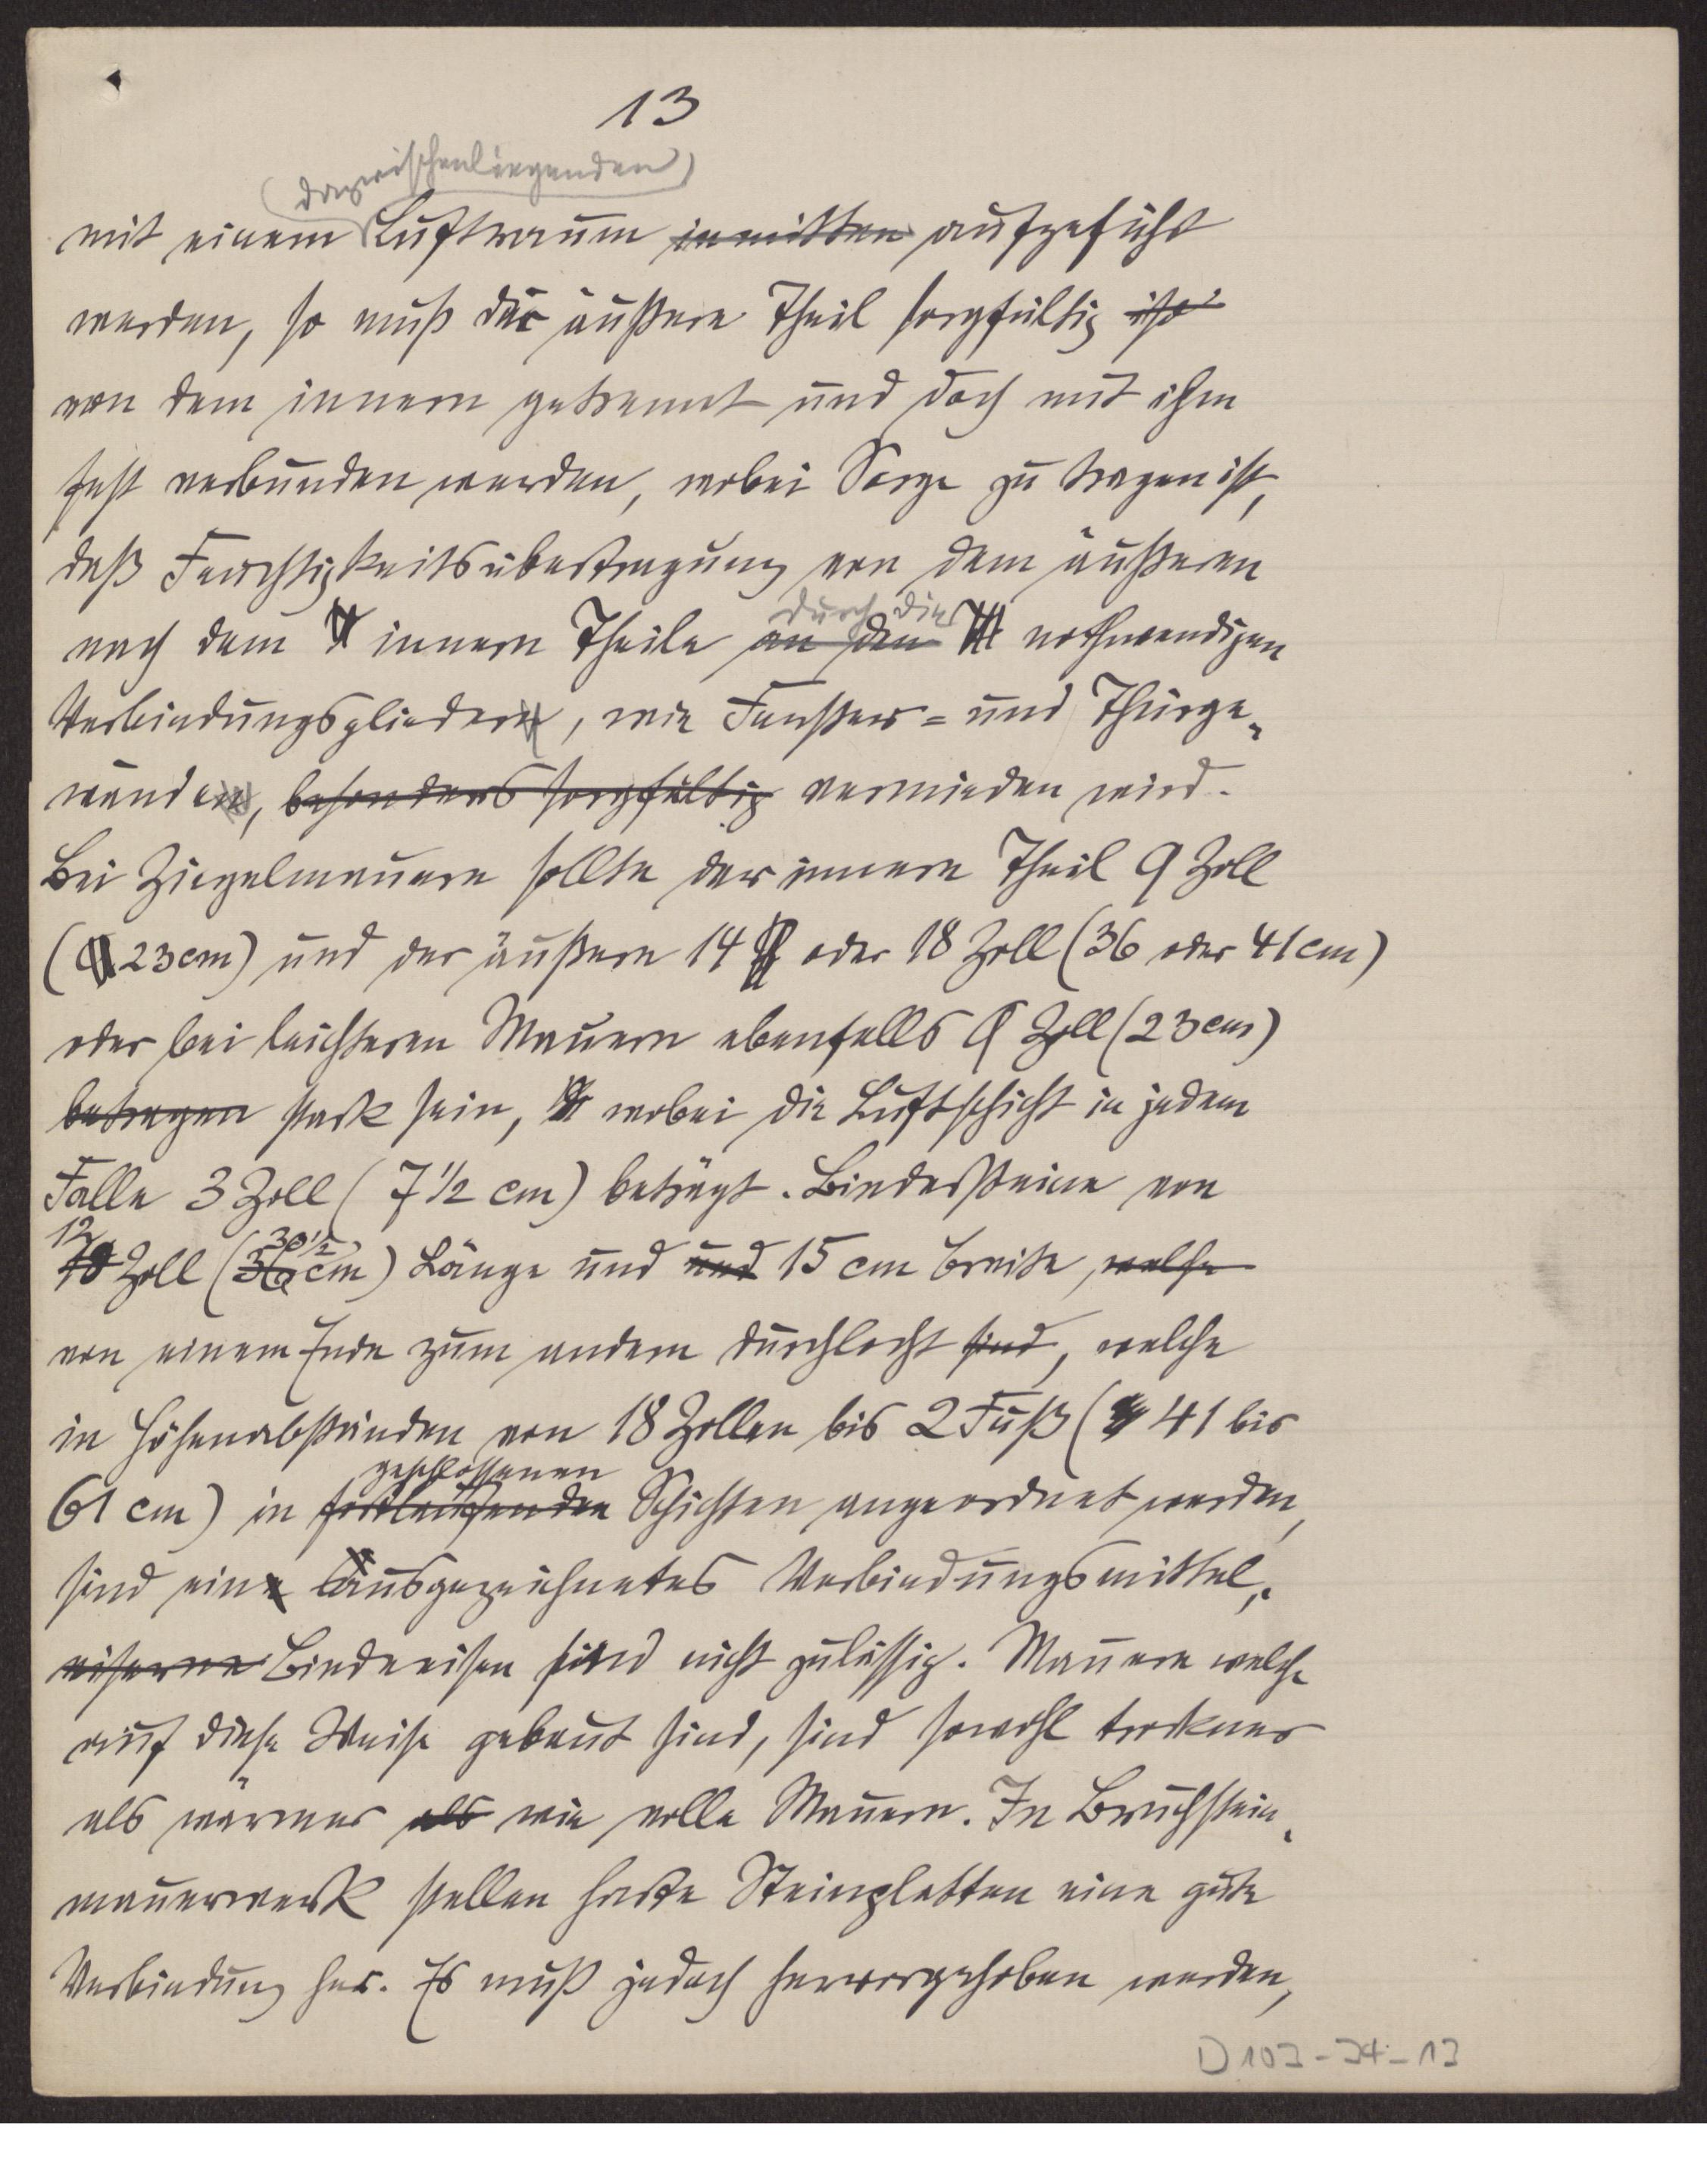 13
(dazwischenliegenden)
mit einem Luftraum inmitten aufgeführt
werden, so muß der äußere Theil sorgfältig ist
von dem innern getrennt und doch mit ihm
fest verbunden werden, wobei Sorge zu tragen ist,
daß Feuchtigkeitsübertragung von dem äußeren
durch die
nach dem innern Theile an den nothwendigen
Verbindungsgliedern, wie Fenster- und Thürge-
wänden, besonders sorgfältig vermieden wird.
Bei Ziegelmauern sollte der innere Theil 9 Zoll
(23 cm) und der äußere 14 oder 18 Zoll (36 oder 41 cm)
oder bei leichteren Mauern ebenfalls 9 Zoll (23 cm)
betragen stark sein, wobei die Luftschicht in jedem
Falle 3 Zoll (7 1/2 cm) beträgt. Bindersteine von
12 30 1/2
18 Zoll (36 cm) Länge und und 15 cm Breite, welche
von einem Ende zum andern durchlocht sind, welche
in Höhenabständen von 18 Zollen bis 2 Fuß (41 bis
geschlossenen
61 cm) in fortlaufenden Schichten angeordnet werden,
sind ein ausgezeichnetes Verbindungsmittel,
eiserne Bindeeisen sind nicht zulässig. Mauern welche
auf diese Weise gebaut sind, sind sowohl trockner
als wärmer als wie volle Mauern. In Bruchstein-
mauerwerk stellen harte Steinplatten eine gute
Verbindung her. Es muß jedoch hervorgehoben werden,
D 103-34-13